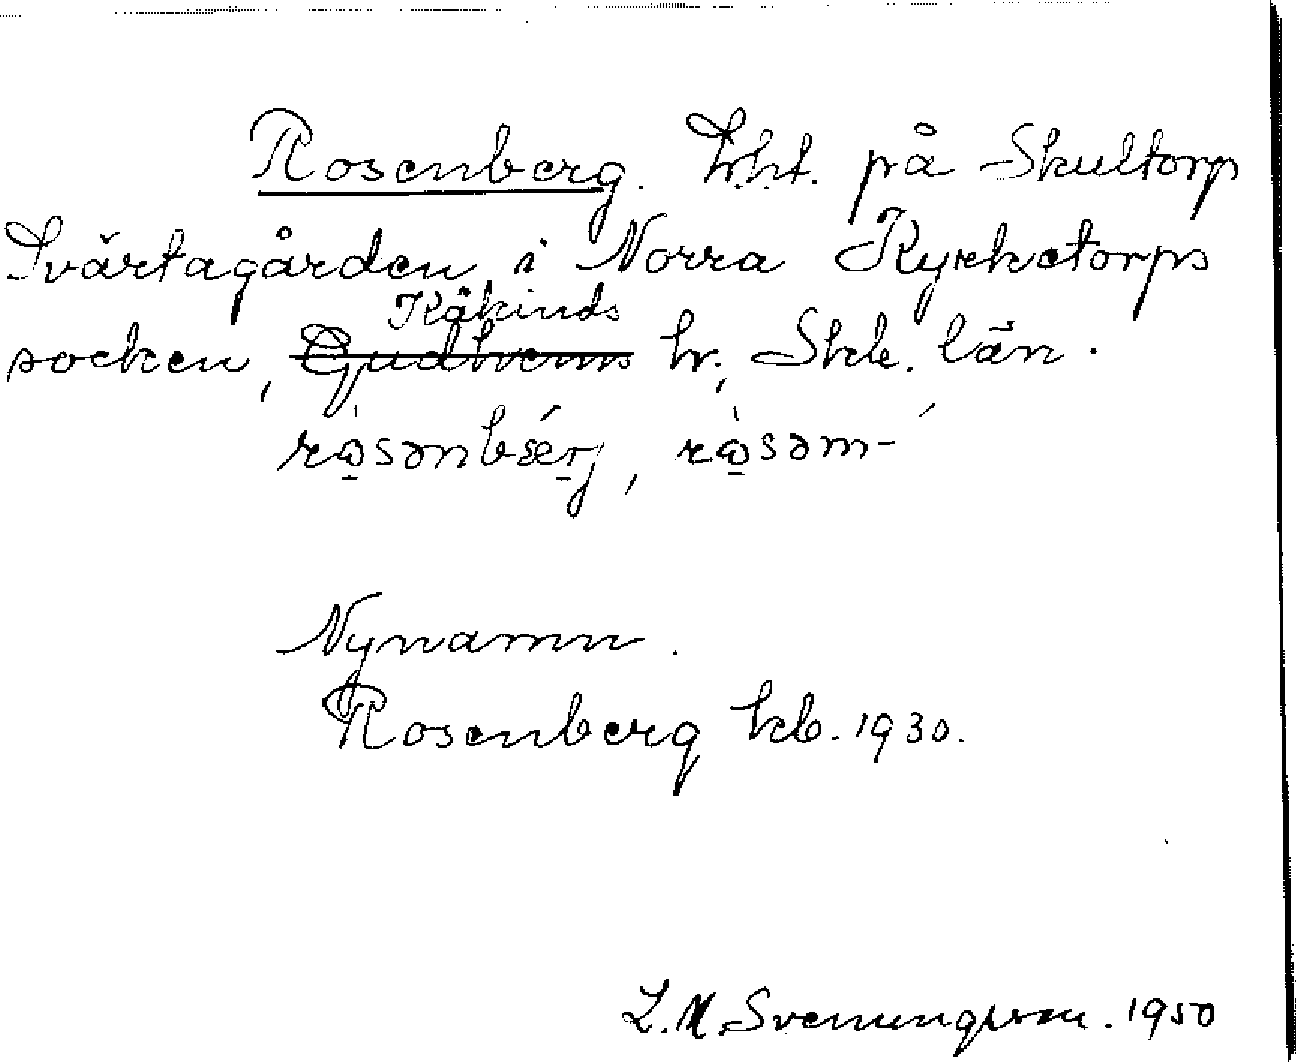 Rosenberg. Lht. på Skultorp
Svärtagården i Norra Kyrketorps
Kåkinds
socken, Gudhems hr., Skb. län.
Nynamn.
Rosenberg kb. 1930.
L.M. Svenungsson. 1950